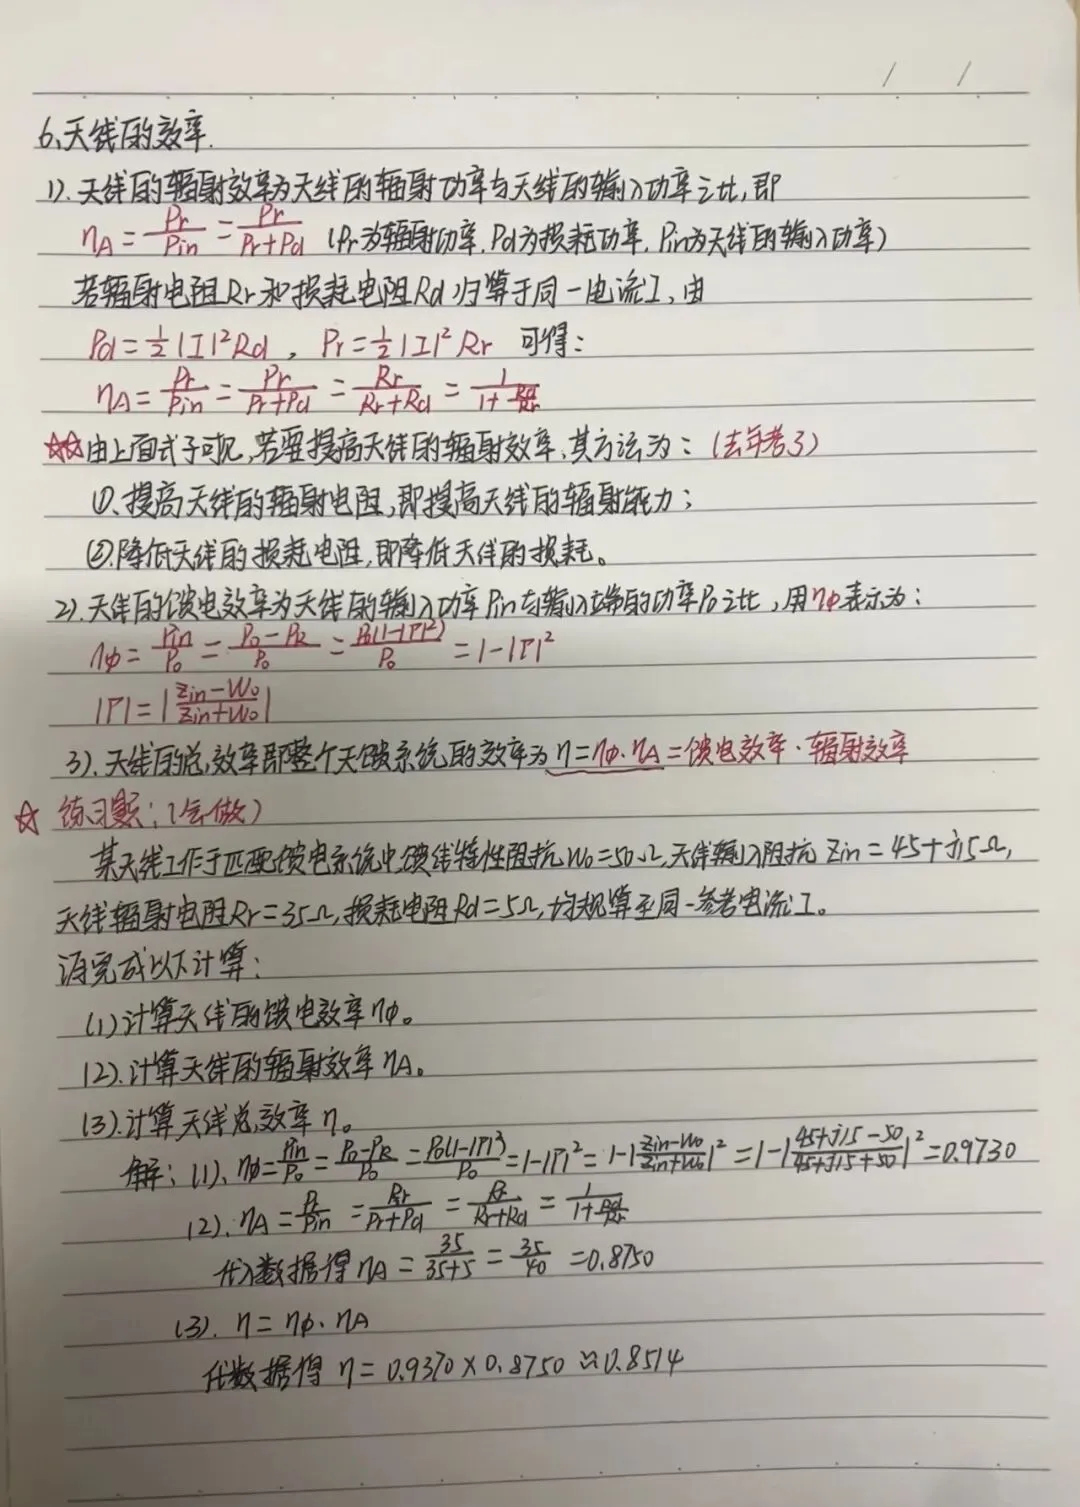 / /
6、天线的效率.
1). 天线的辐射效率为天线的辐射功率与天线的输入功率之比,即
ηA = Pr/Pin = Pr/(Pr+Pd) (Pr为辐射功率.Pd为损耗功率.Pin为天线的输入功率)
若辐射电阻Rr和损耗电阻Rd归算于同一电流I,由
Pd = ½|I|²Rd , Pr = ½|I|²Rr 可得:
ηA = Pr/Pin = Pr/(Pr+Pd) = Rr/(Rr+Rd) = 1/(1+Rd/Rr)
☆☆由上面式子可见,若要提高天线的辐射效率,其方法为:(去年考了)
①、提高天线的辐射电阻,即提高天线的辐射能力;
②.降低天线的损耗电阻,即降低天线的损耗。
2). 天线的馈电效率为天线的输入功率Pin与输入端的功率P₀之比,用ηφ表示为:
ηφ = Pin/P₀ = (P₀-PR)/P₀ = P₀(1-|Γ|²)/P₀ = 1-|Γ|²
|Γ| = |(Zin-W₀)/(Zin+W₀)|
3). 天线的总效率即整个天馈系统的效率为 η=ηφ·ηA=馈电效率·辐射效率
☆ 练习题:(会做)
某天线工作于匹配馈电系统中馈线特性阻抗W₀=50Ω,天线输入阻抗 Zin=45+j15Ω,
天线辐射电阻Rr=35Ω,损耗电阻Rd=5Ω,均规算至同一参考电流I。
请完成以下计算:
(1)计算天线的馈电效率ηφ。
(2).计算天线的辐射效率ηA。
(3).计算天线总效率η。
解:(1)、ηφ = Pin/P₀ = (P₀-PR)/P₀ = P₀(1-|Γ|²)/P₀ = 1-|Γ|² = 1-|(Zin-W₀)/(Zin+W₀)|² = 1-|(45+j15-50)/(45+j15+50)|² = 0.9730
(2). ηA = Pr/Pin = Rr/(Pr+Pd) = Rr/(Rr+Rd) = 1/(1+Rd/Rr)
代入数据得 ηA = 35/(35+5) = 35/40 = 0.8750
(3). η = ηφ·ηA
代数据得 η = 0.9370×0.8750 ≈ 0.8514